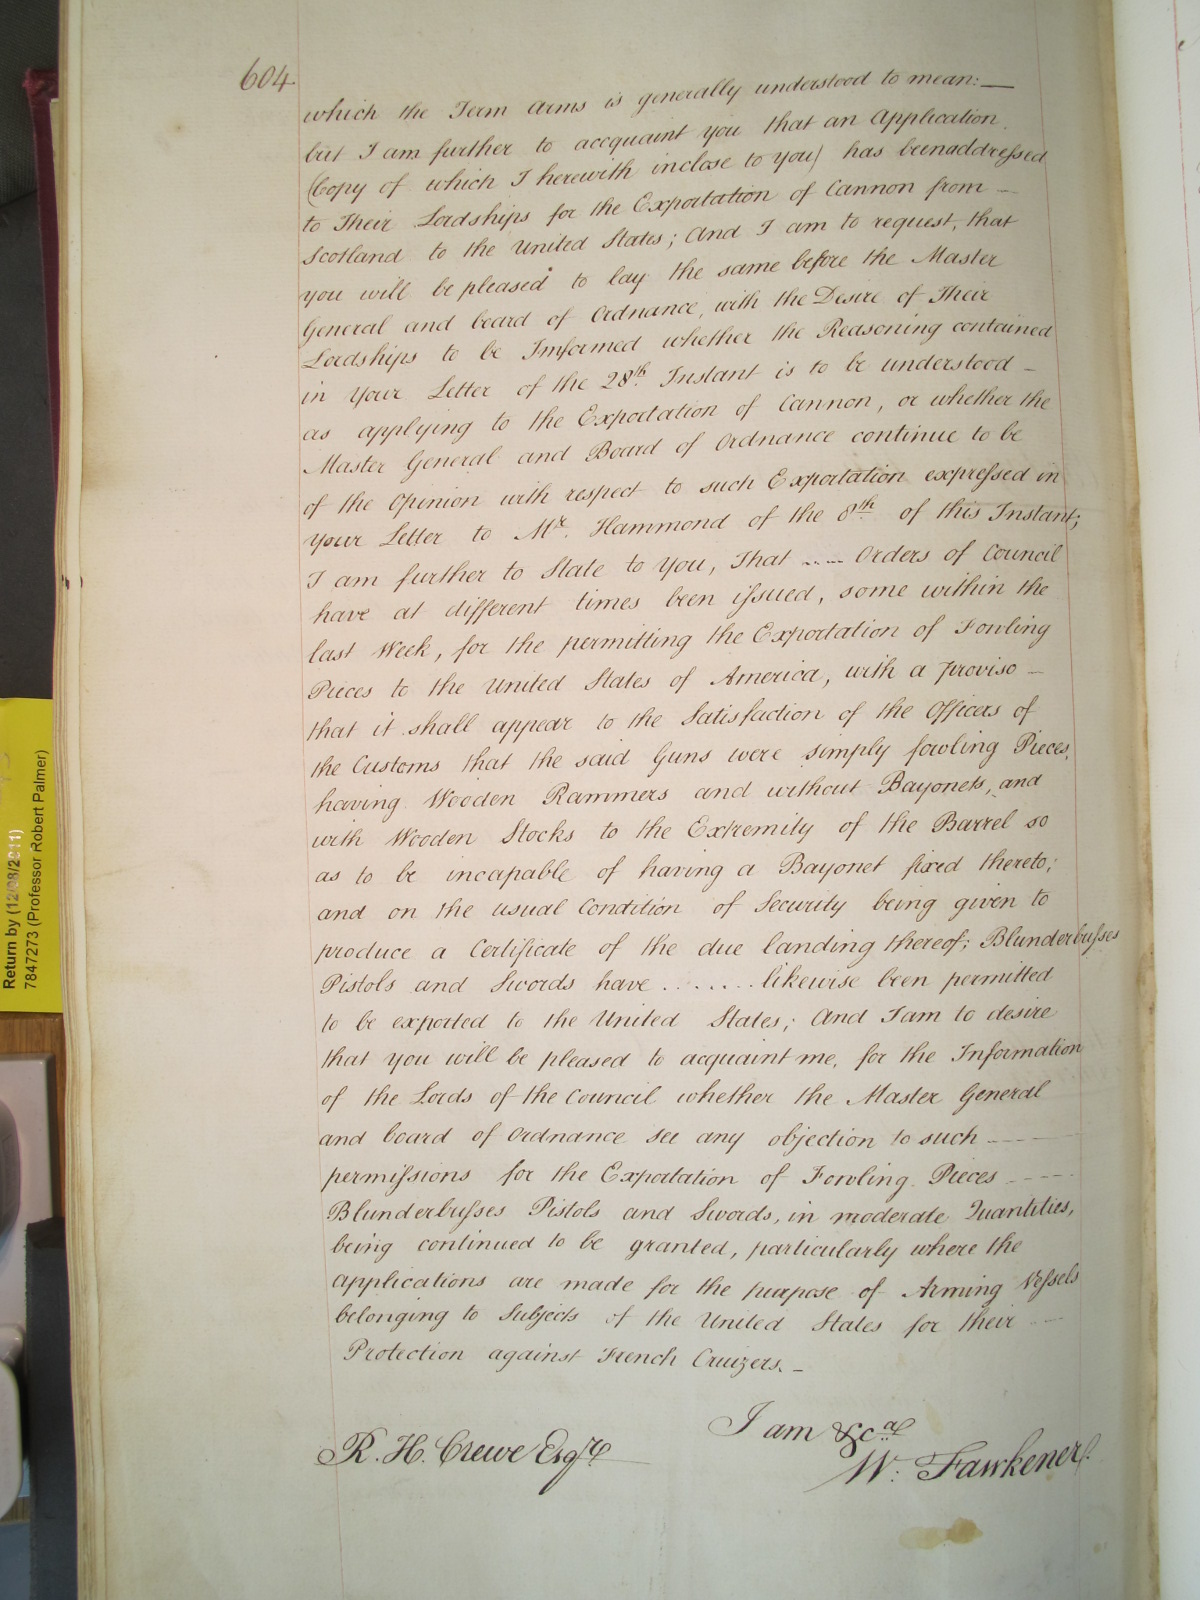 604.
which the Term Arms is generally understood to mean:—
but I am further to accquaint you that an Application
(Copy of which I herewith inclose to you) has been addressed
to Their Lordships for the Exportation of Cannon from —
Scotland to the United States; And I am to request, that
you will be pleased to lay the same before the Master
General and board of Ordnance, with the Desire of Their
Lordships to be Imformed whether the Reasoning contained
in Your Letter of the 28th Instant is to be understood —
as applying to the Exportation of Cannon, or whether the
Master General and Board of Ordnance continue to be
of the Opinion with respect to such Exportation expressed in
your Letter to Mr. Hammond of the 8th of this Instant;
I am further to State to You, That ..... Orders of Council
have at different times been issued, some within the
last Week, for the permitting the Exportation of Fowling
Pieces to the United States of America, with a proviso —
that it shall appear to the Satisfaction of the Officers of
the Customs that the said Guns were simply fowling Pieces,
having Wooden Rammers and without Bayonets, and
with Wooden Stocks to the Extremity of the Barrel so
as to be incapable of having a Bayonet fixed thereto;
and on the usual Condition of Security being given to
produce a Certificate of the due landing thereof; Blunderbusses
Pistols and Swords have ........ likewise been permitted
to be exported to the United States; And I am to desire
that you will be pleased to acquaint me, for the Information
of the Lords of the Council whether the Master General
and board of Ordnance see any objection to such ----
permissions for the Exportation of Fowling Pieces ----
Blunderbusses Pistols and Swords, in moderate Quantities,
being continued to be granted, particularly where the
applications are made for the purpose of Arming Vessels
belonging to Subjects of the United States for their ---
Protection against French Cruizers. —
I am &ca
R. H. Crewe Esqre
W. Fawkener.
Return by (12/08/2011)
7847273 (Professor Robert Palmer)